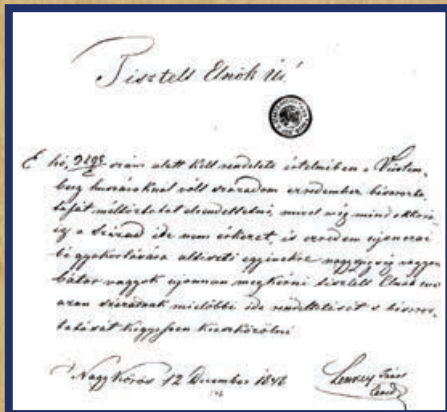 Tisztelt Elnök Úr!
E hó, 9298 szám alatt kelt rendelete értelmében a Würtem-
berg huszároknál volt századom ezredembe
méltóztatott elrendeltetni, mivel még mind ekkorá-
ig a század ide nem érkezett, és ezredem ujonczai
bé gyakorlására altiszti egyénekre nagy szükség vagyon
bátor vagyok ujonnan megkérni tisztelt Elnök
azon századnak mielőbbi ide rendeltetését s
kegyessen kieszközölni
Nagy Körös 12 December 1848
Lenkey János